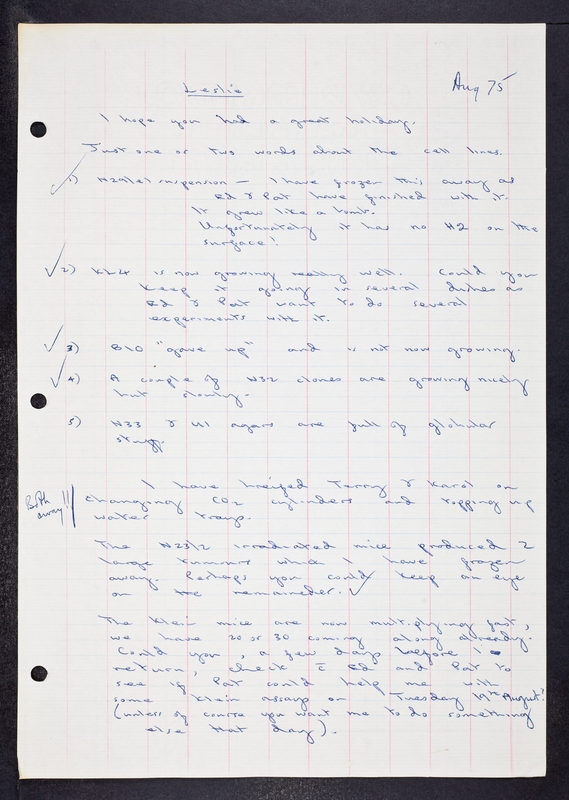 Leslie
Aug 75
I hope you had a great holiday.
Just one or two words about the cell lines.
1) suspension — I have frozen this away as
Ed & Pat have finished with it.
It grew like a bomb.
Unfortunately it has no H2 on the
surface!
2) is now growing really well. Could you
keep it going in several dishes as
Ed & Pat want to do several
experiments with it.
3) B10 "gave up" and is not now growing.
4) A couple of N32 clones are growing nicely
but slowly.
5) N33 & U1 agars are full of globular
stuff.
I have briefed Terry & Karol on
changing CO2 cylinders and topping up
water traps.
Both
away!!
The N23/2 irradiated mice produced 2
large tumours which I have frozen
away. Perhaps you could keep an eye
on the remainder.
The Klein mice are now multiplying fast,
we have 20 or 30 coming along already.
Could you, a few days before I
return, check c̄ Ed and Pat to
see if Pat could help me with
some Klein assays on Tuesday 19th August?
(unless of course you want me to do something
else that day).